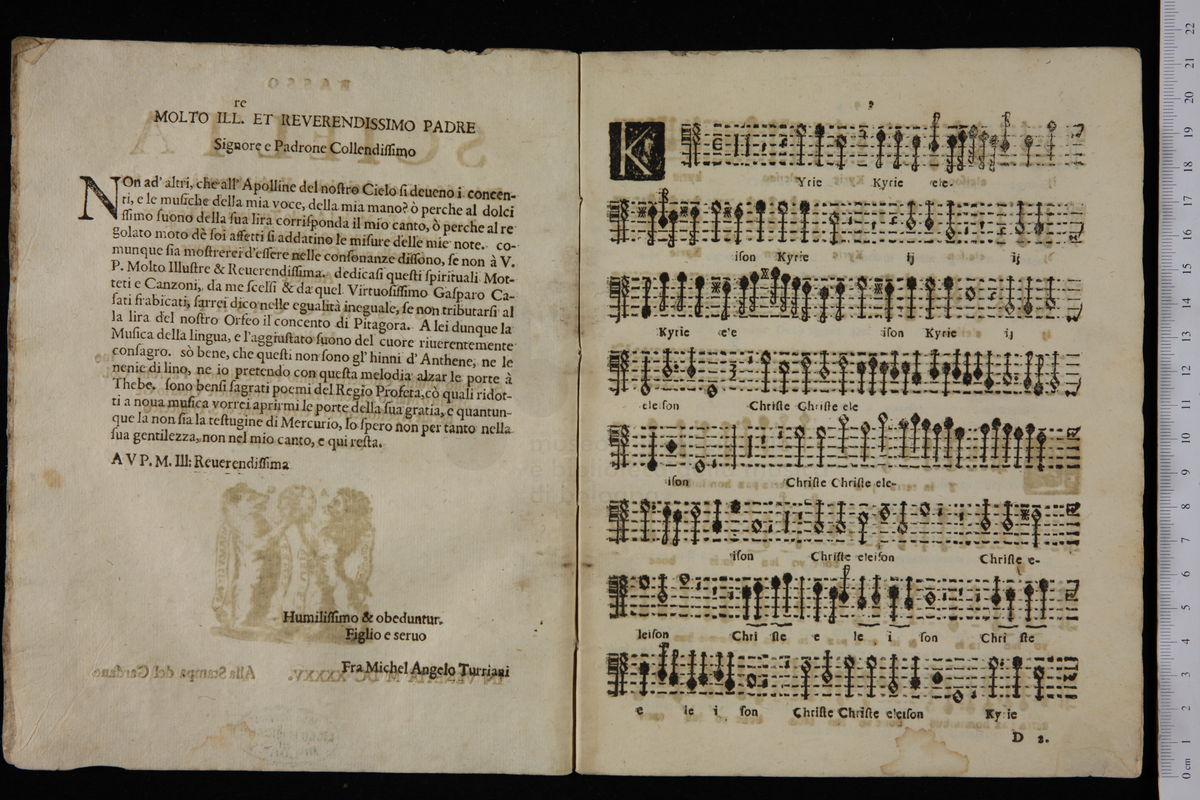 re
MOLTO ILL. ET REVERENDISSIMO PADRE
Signore e Padrone Collendiſſimo
NOn ad' altri, che all' Apolline del noſtro Cielo ſi deueno i concen-
ti, e le muſiche della mia voce, della mia mano? ò perche al dolci
ſſimo ſuono della ſua lira corriſponda il mio canto, ò perche al re
golato moto dè ſoi affetti ſi addatino le miſure delle mie note. co-
munque ſia moſtrerei d'eſſere nelle conſonanze diſſono, ſe non à V.
P. Molto Illuſtre & Reuerendiſſima. dedicaſi queſti ſpirituali Mot-
teti e Canzoni, da me ſcelſi & da quel Virtuoſiſſimo Gaſparo Ca-
ſati frabicati, ſarrei dico nelle egualità ineguale, ſe non tributarſi al
la lira del noſtro Orfeo il concento di Pitagora. A lei dunque la
Muſica della lingua, e l'aggiuſtato ſuono del cuore riuerentemente
conſagro. sò bene, che queſti non ſono gl' hinni d' Anthene, ne le
nenie di lino, ne io pretendo con queſta melodia alzar le porte à
Thebe. ſono benſi ſagrati poemi del Regio Profeta, cò quali ridot-
ti a noua muſica vorrei aprirmi le porte della ſua gratia, e quantun-
que la non ſia la teſtugine di Mercurio, Io ſpero non per tanto nella
ſua gentilezza, non nel mio canto, e qui reſta.
A V P. M. Ill: Reuerendiſſima
Humiliſſimo & obeduntur.
Figlio e ſeruo
Fra Michel Angelo Turriani
KYrie Kyrie ele.
iſon Kyrie ij ij
Kyrie ele iſon Kyrie ij
eleiſon Chriſte Chriſte ele
iſon Chriſte Chriſte ele-
iſon Chriſte eleiſon Chriſte e-
leiſon Chri ſte e le i ſon Chri ſte
e le i ſon Chriſte Chriſte eleiſon Kyrie
D 2.